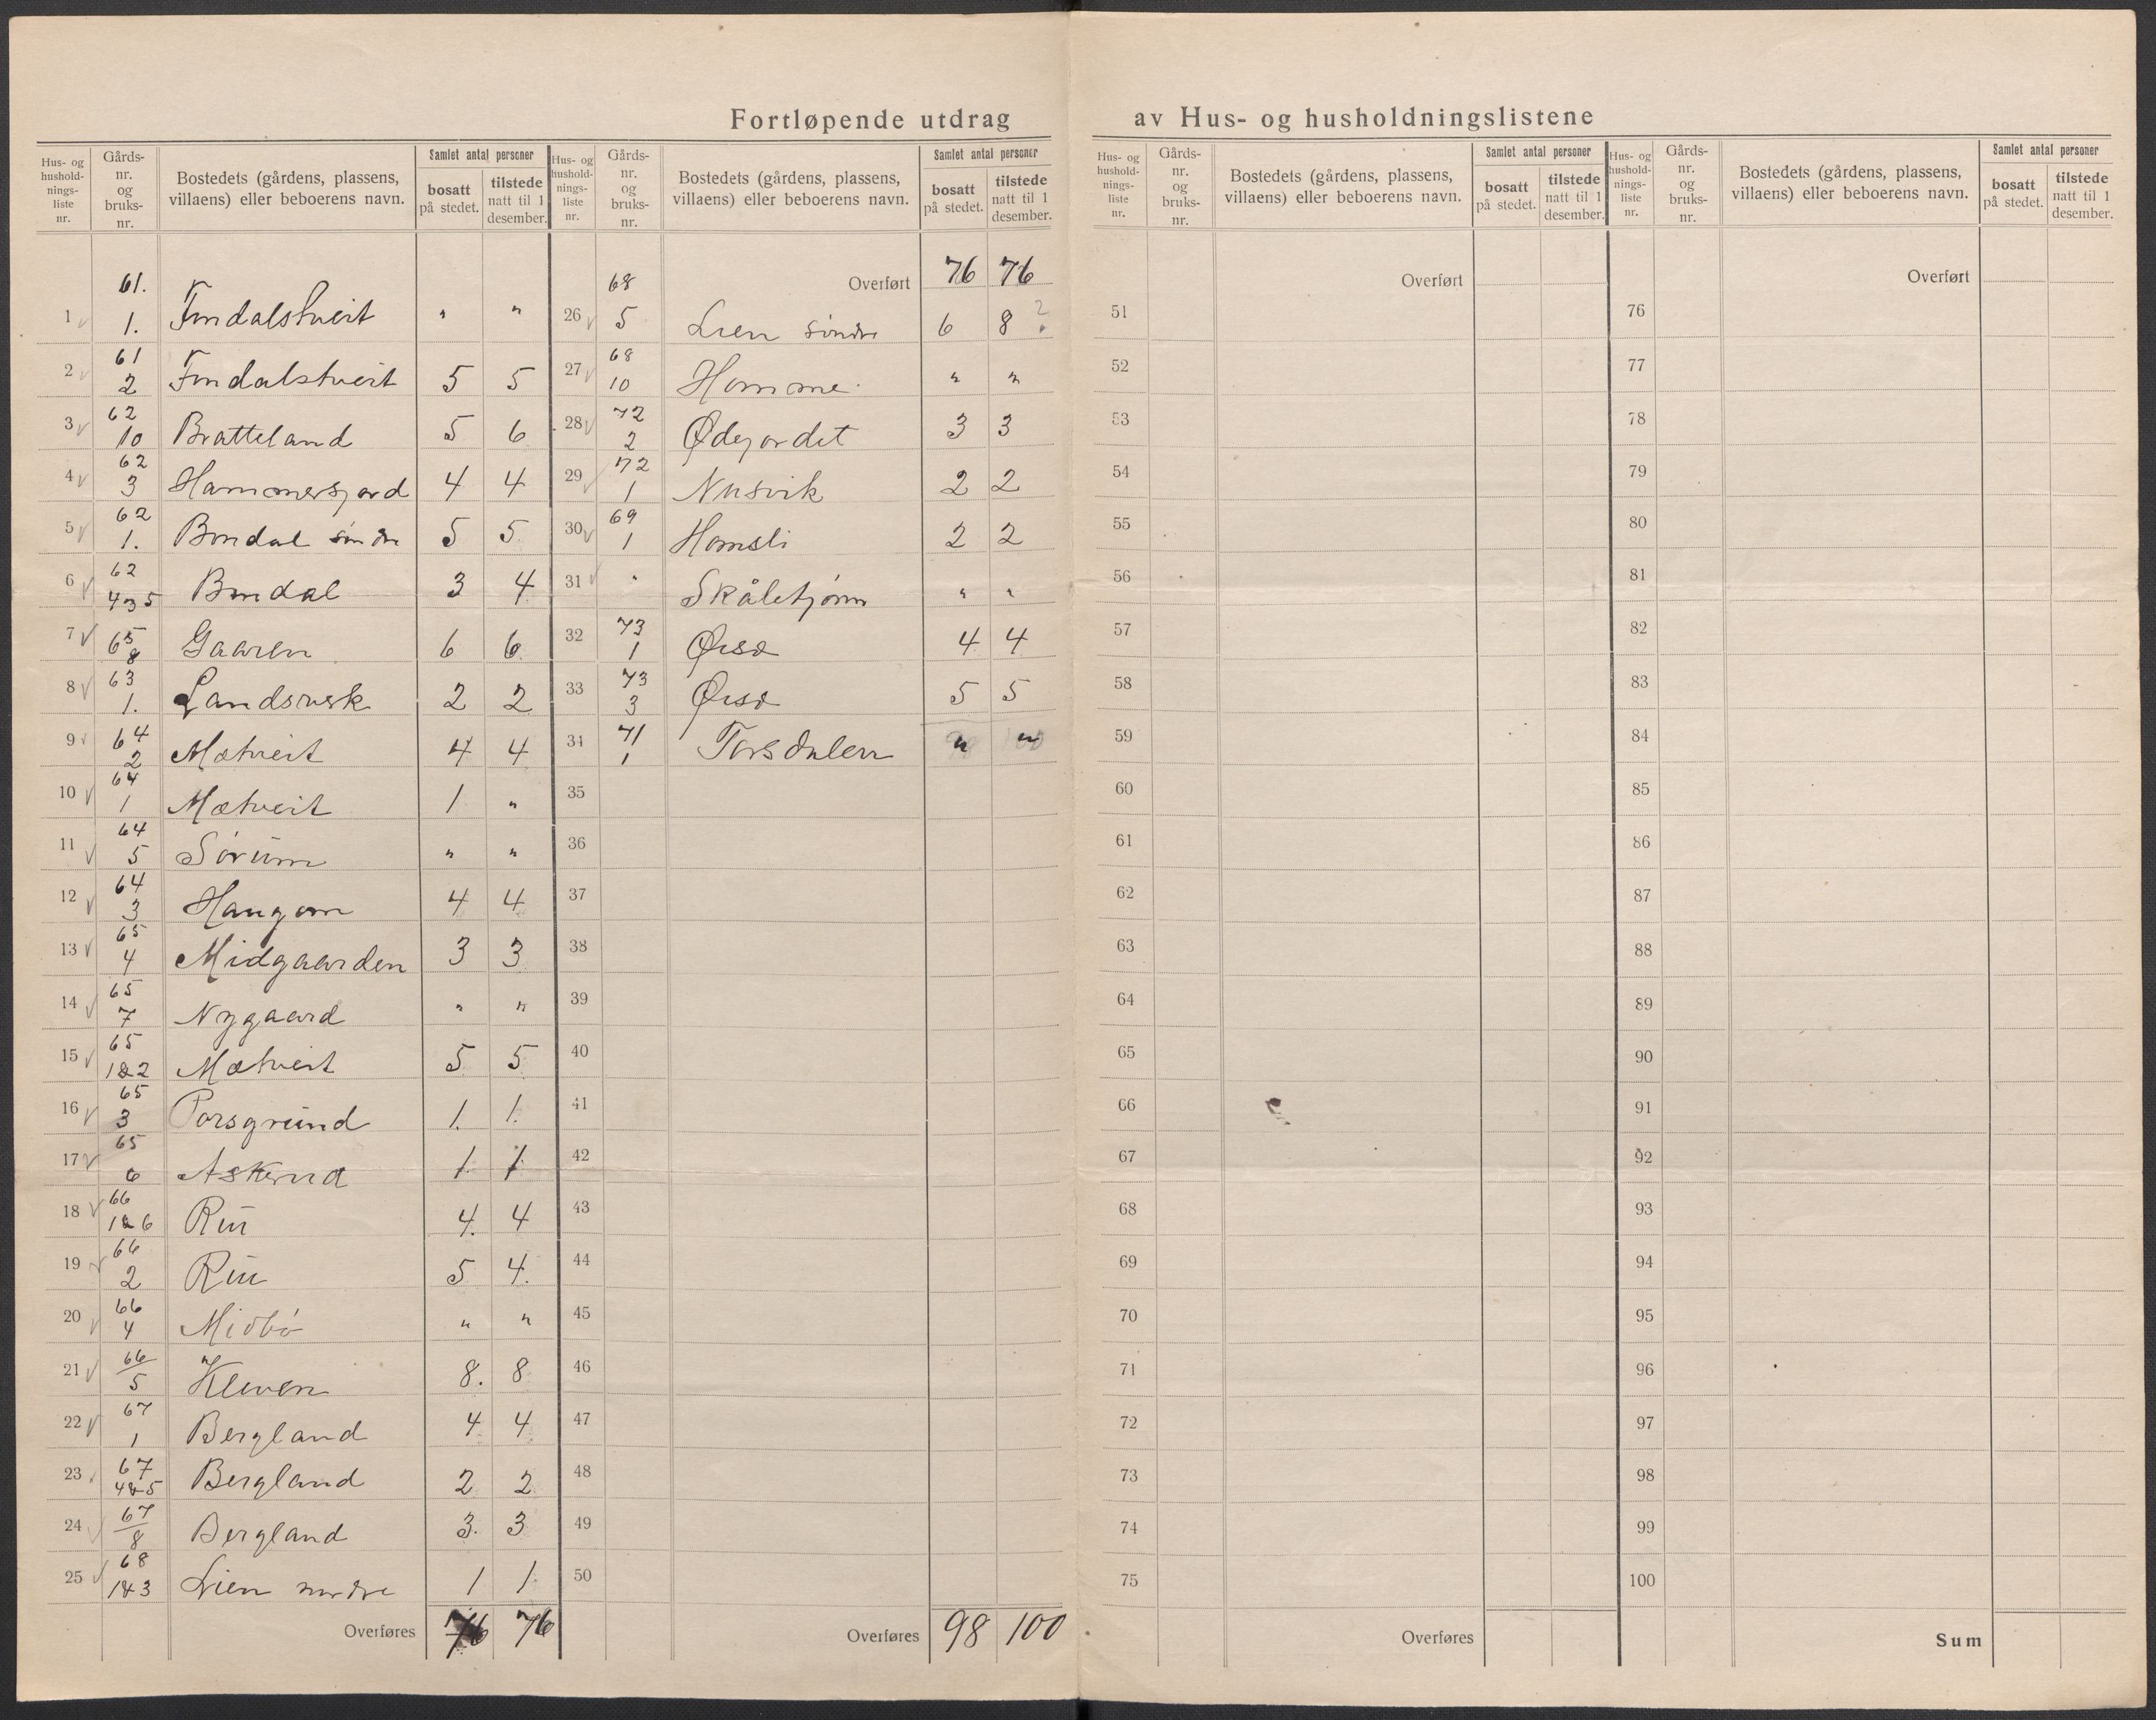 Fortløpende utdrag av Hus- og husholdningslistene
Hus- og hushold-nings-liste nr. Gårds-nr. og bruks-nr. Bostedets (gårdens, plassens, villaens) eller beboerens navn. Samlet antal personer bosatt på stedet. tilstede natt til 1 desember.
1 61. 1. Findalstveit " "
2 61 2 Findalstveit 5 5
3 62 10 Bratteland 5 6
4 62 3 Hammersjord 4 4
5 62 1. Bondal søndre 5 5
6 62 Bondal 3 4
7 65 8 Gaaren 6 6
8 63 1. Landsverk 2 2
9 64 2 Mætveit 4 4
10 64 1 Mætveit 1 "
11 64 5 Sørum " "
12 64 3 Haugom 4 4
13 65 4 Midgaarden 3 3
14 65 7 Nygaard " "
15 65 1&2 Mætveit 5 5
16 65 3 Porsgrund 1. 1.
17 65 6 Askerud 1. 1
18 66 1&6 Rui 4. 4
19 66 2 Rui 5 4.
20 66 4 Midbø " "
21 66 5 Kleven 8. 8
22 67 1 Bergland 4 4
23 67 4&5 Bergland 2 2
24 67 8 Bergland 3. 3
25 68 1&3 Lien nordre 1 1
Overføres 76 76
Hus- og hushold-nings-liste nr. Gårds-nr. og bruks-nr. Bostedets (gårdens, plassens, villaens) eller beboerens navn. Samlet antal personer bosatt på stedet. tilstede natt til 1 desember.
Overført 76 76
26 68 5 Lien søndre 6 8 ?
27 68 10 Homme. " "
28 72 2 Ødegordet 3 3
29 72 1 Nusvik 2 2
30 69 1 Homsli 2 2
31 " Skåletjønn " "
32 73 1 4 4
33 73 3 5 5
34 71 1 Torsdalen " "
35
36
37
38
39
40
41
42
43
44
45
46
47
48
49
50
Overføres 98 100
Hus- og hushold-nings-liste nr. Gårds-nr. og bruks-nr. Bostedets (gårdens, plassens, villaens) eller beboerens navn. Samlet antal personer bosatt på stedet. tilstede natt til 1 desember.
Overført
51
52
53
54
55
56
57
58
59
60
61
62
63
64
65
66
67
68
69
70
71
72
73
74
75
Overføres
Hus- og hushold-nings-liste nr. Gårds-nr. og bruks-nr. Bostedets (gårdens, plassens, villaens) eller beboerens navn. Samlet antal personer bosatt på stedet. tilstede natt til 1 desember.
Overført
76
77
78
79
80
81
82
83
84
85
86
87
88
89
90
91
92
93
94
95
96
97
98
99
100
Sum